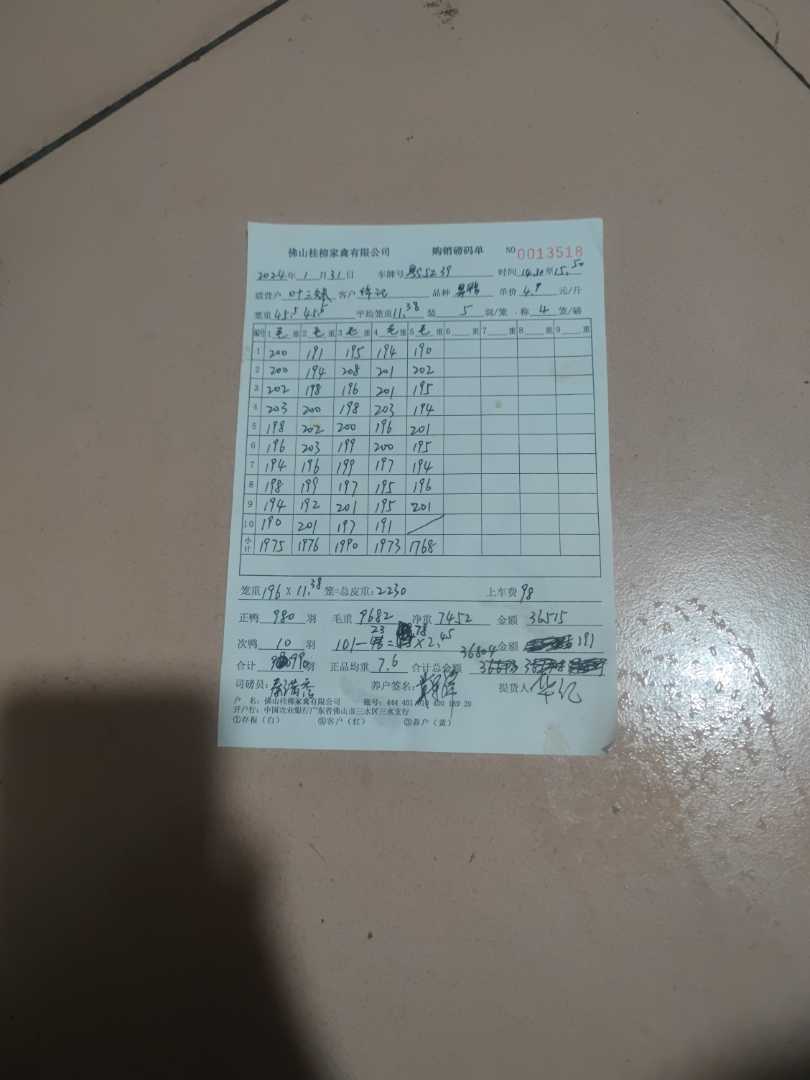 佛山桂柳家禽有限公司 购销磅码单 NO 0013518
2024年 1月31日 车牌号 粤S5239 时间 14.30至15.50
客户 品种 单价 4.9 元/斤
笼重 45.5 45.5 平均笼重 11.38 装 5 羽/笼 称 4 笼/磅
编号 1 毛 重 2 毛 重 3 毛 重 4 毛 重 5 毛 重 6 重 7 重 8 重 9 重
1 200 191 195 194 190
2 200 194 208 201 202
3 202 198 196 201 195
4 203 200 198 203 194
5 198 202 200 196 201
6 196 203 199 200 195
7 194 196 199 197 194
8 198 199 197 195 196
9 194 192 201 195 201
10 190 201 197 191
小计 1975 1976 1990 1973 1768
笼重 196 X 11.38 笼=总皮重: 2230 上车费 98
正鸭 980 羽 毛重 9682 净重 7452 金额 36515
次鸭 10 羽 101-23=78×2.45 金额 191
合计 990 羽 正品均重 7.6 合计总金额 36804
司磅员: 养户签名: 提货人
户 名: 佛山桂柳家禽有限公司 账号:
开户行: 中国农业银行广东省佛山市三水区三水支行
①存根(白) ②客户(红) ③养户(黄)